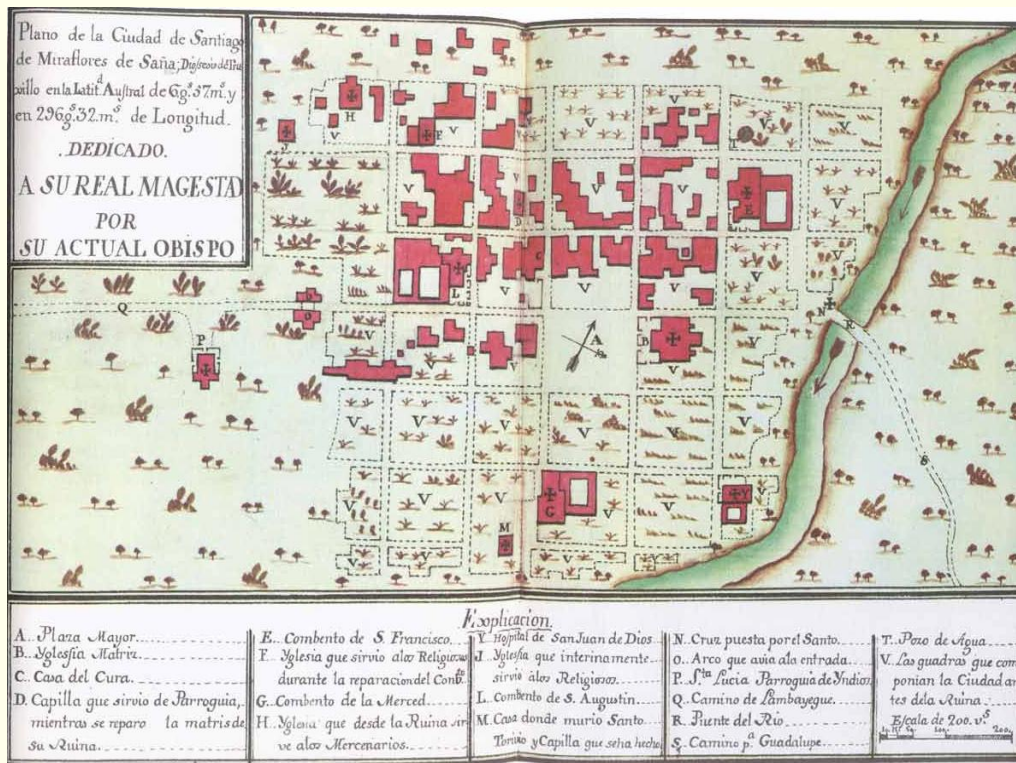 Plano de la Ciudad de Santiago
de Miraflores de Saña; Diosesis de Tru
xillo en la Latit.d Austral de 6g.s 37m.s y
en 296g.s 32.m.s de Longitud.
.DEDICADO.
A SU REAL MAGESTAD
POR
SU ACTUAL OBISPO
Explicacion.
A.. Plaza Mayor.
B.. Yglessia Matriz.
C.. Casa del Cura.
D.. Capilla que sirvio de Parroquia,
mientras se reparo la matris de
su Ruina.
E.. Combento de S. Francisco.
F.. Yglesia que sirvio alos Religiosos
durante la reparacion del Conb.to
G.. Combento de la Merced.
H.. Yglesia que desde la Ruina sir-
ve alos Mercenarios.
Y Hospital de San Juan de Dios
J.. Yglesia que interinamente
sirvio alos Religiosos.
L.. Combento de S. Augustin.
M.. Casa donde murio Santo
Torivio y Capilla que seha hecho
N.. Cruz puesta por el Santo.
O.. Arco que avia ala entrada.
P.. S.ta Lucia Parroquia de Yndios
Q.. Camino de Lambayeque.
R.. Puente del Rio.
S.. Camino p.a Guadalupe.
T.. Pozo de Agua
V.. Las quadras que com
ponian la Ciudad an
tes dela Ruina.
Escala de 200. v.s
H
J
F
V
V
V
V
V
V
T
V
V
V
D
V
V
E
V
L
V
C
V
V
V
V
Q
O
N
R
P
V
V
V
A
B
V
V
V
V
V
V
S
V
V
V
G
V
V
Y
V
M
V
V
V